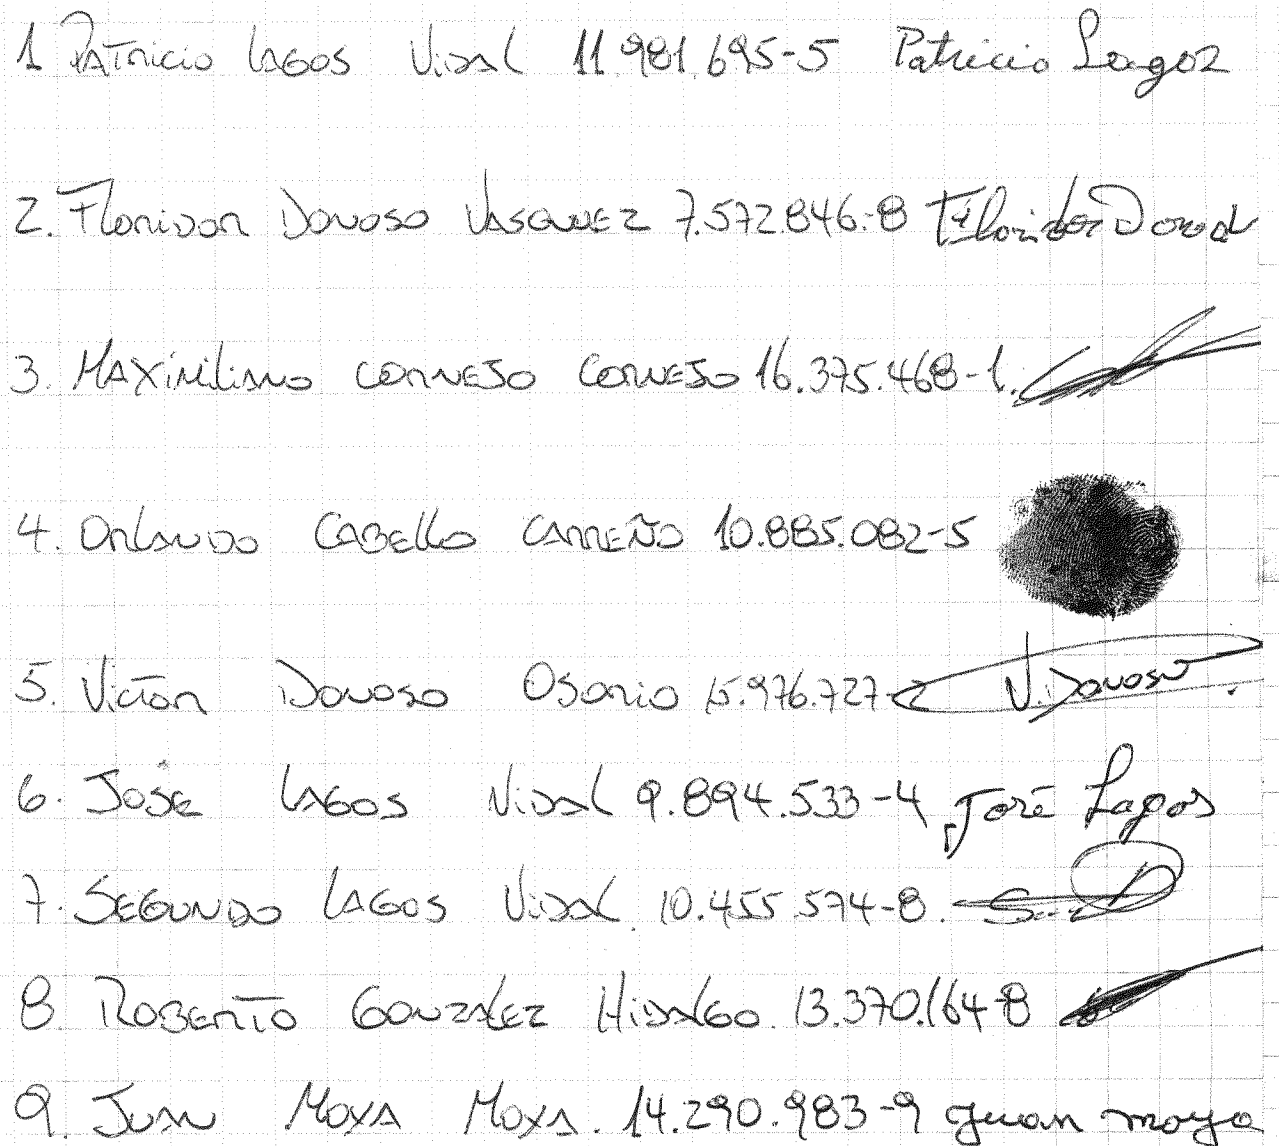 1 Patricio Lagos Vidal 11.981.695-5 Patricio Lagos
2. Floridor Donoso Vasquez 7.572.846-8 Floridor Donoso
3. Maximiliano Cornejo Cornejo 16.375.468-1.
4. Orlando Cabello Carreño 10.885.082-5
5. Victor Donoso Osorio 15.976.727-2 V. Donoso
6. José Lagos Vidal 9.894.533-4 José Lagos
7. Segundo Lagos Vidal. 10.455.574-8.
8. Roberto Gonzalez Hidalgo. 13.370.164-8
9. Juan Moya Moya. 14.290.983-9 Juan moya